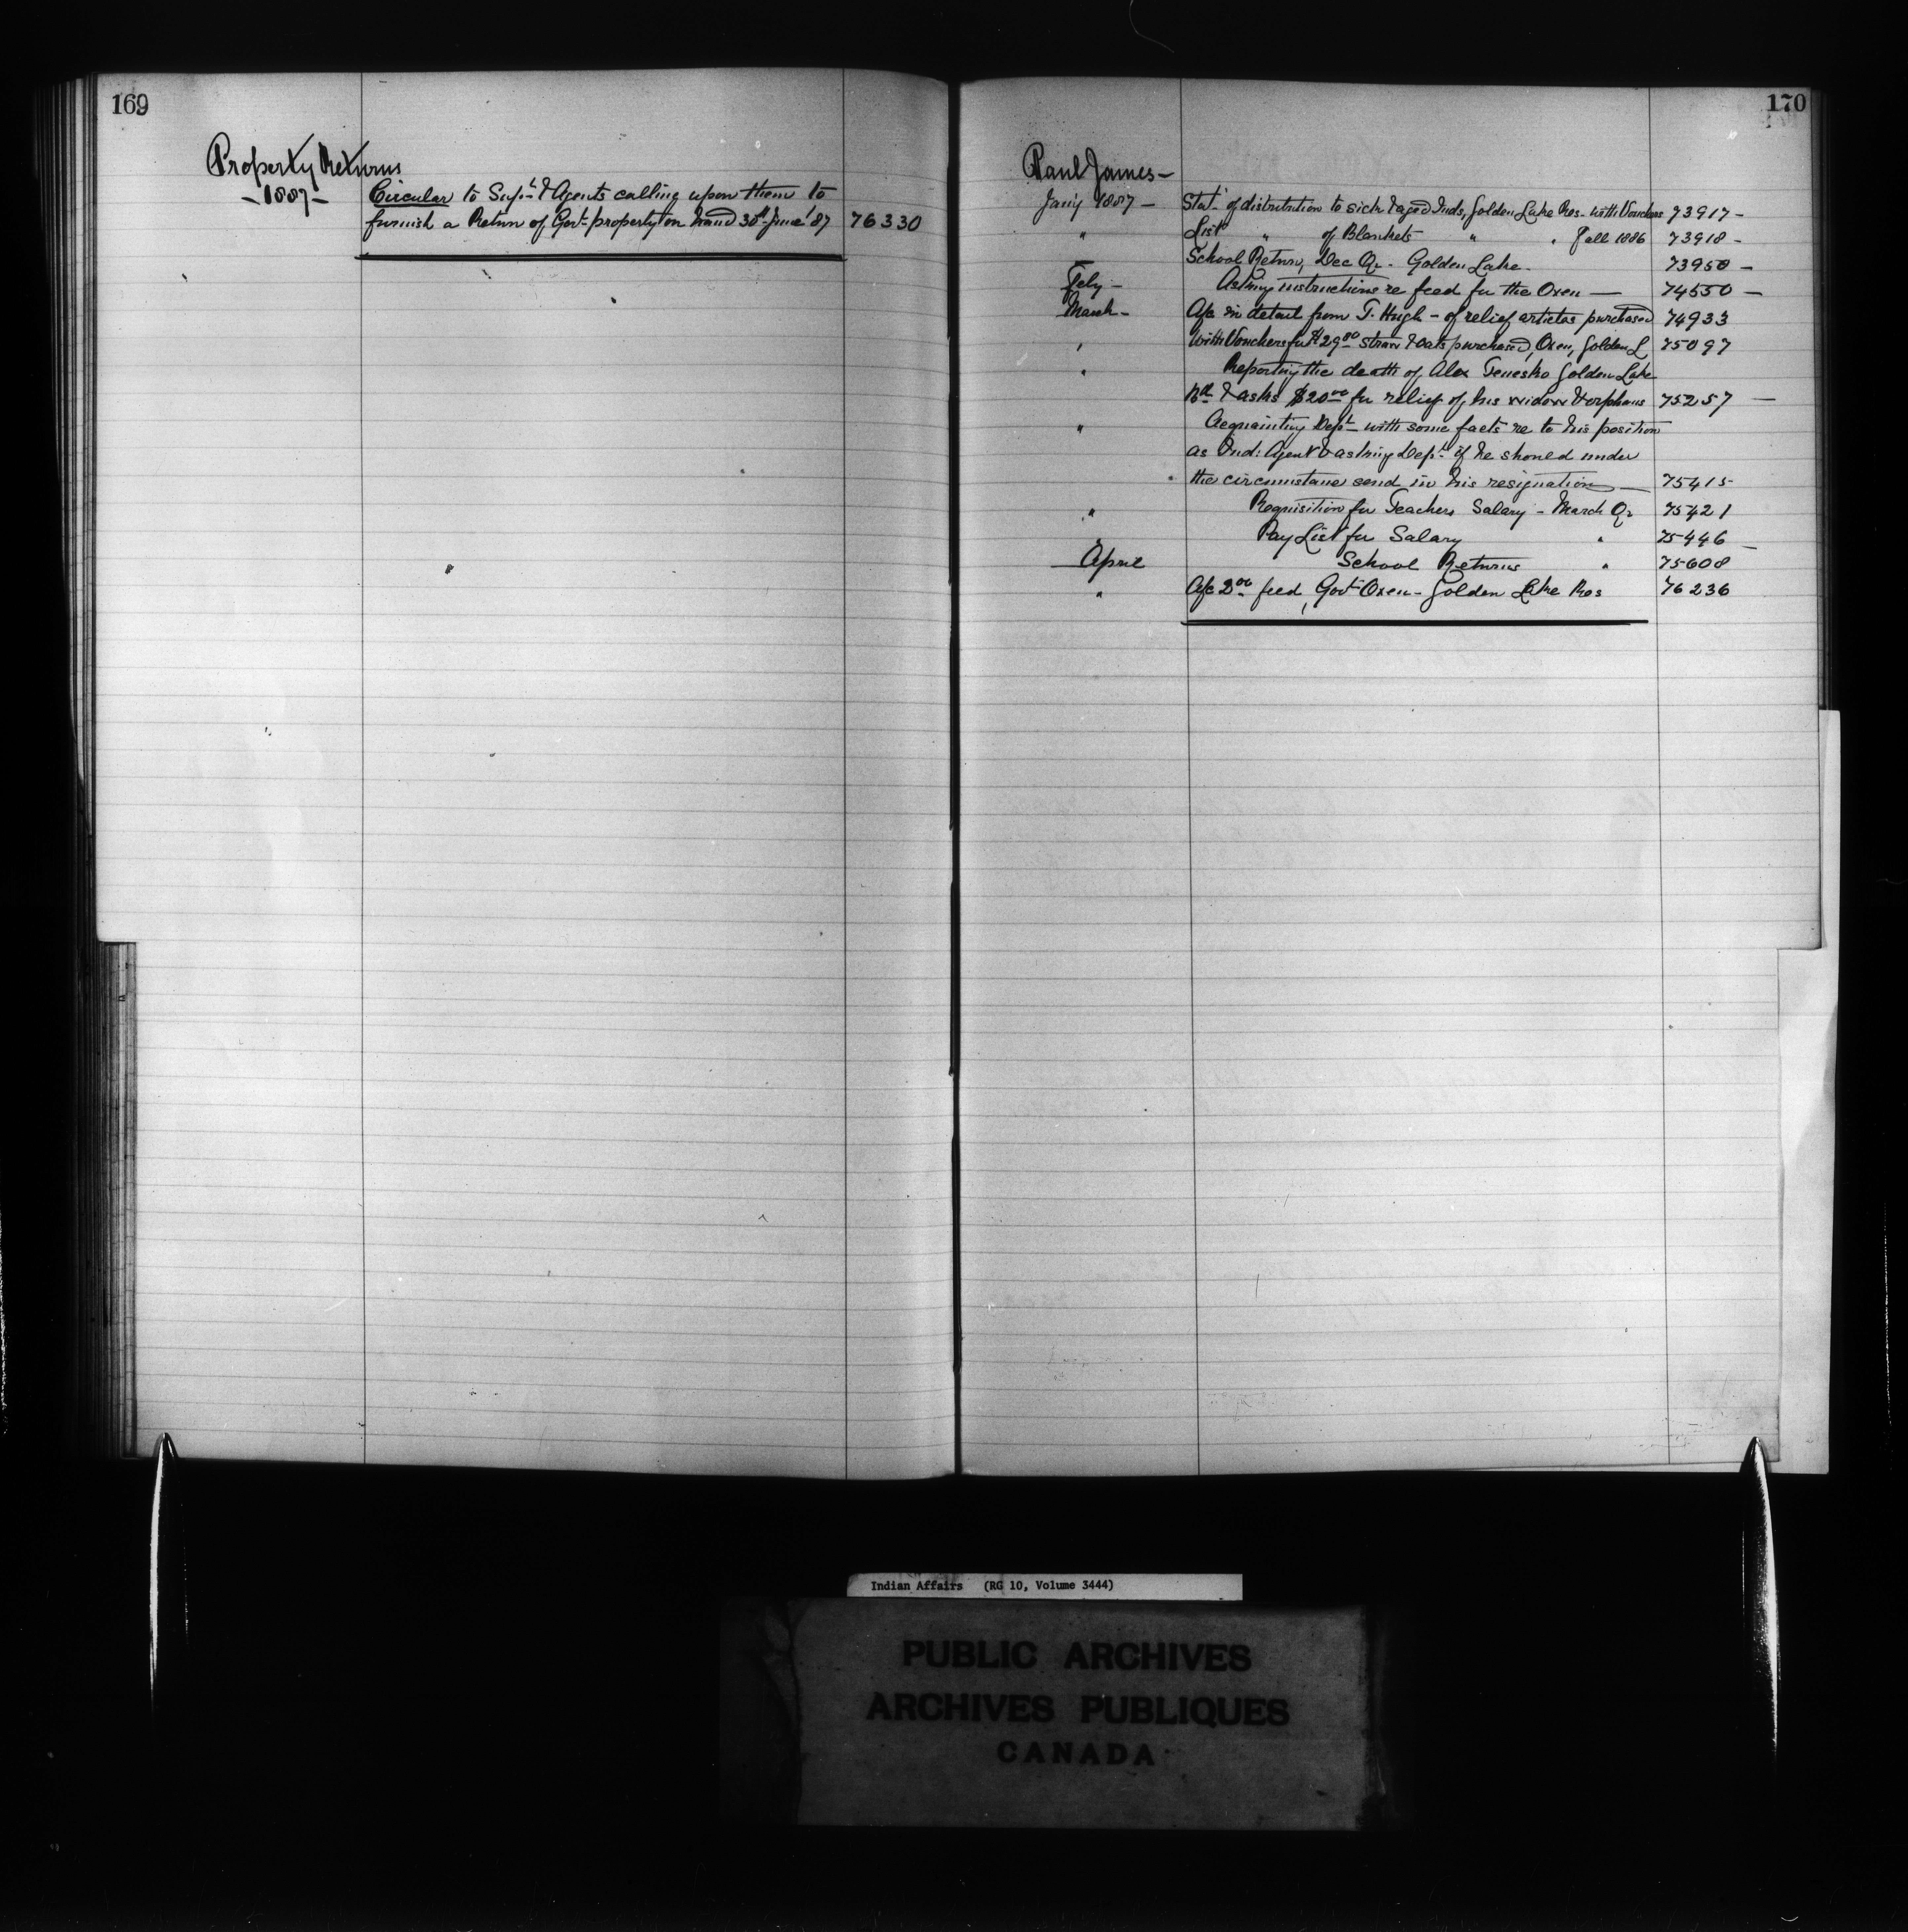 169
Property Returns
- 1887 -
Circular to Supts & Agents calling upon them to
furnish a Return of Govt property on hand 30th June '87 76330
170
Paul James -
Jany 1887 - Stat. of distribution to sick & aged Inds, Golden Lake Res - with Vouchers 73917 -
" List " of Blankets " " Fall 1886 73918 -
School Return, Dec Qr - Golden Lake - 73950 -
Feby - Asking instructions re feed for the Oxen - 74550 -
March - A/c in detail from T. Hugh - of relief articles purchased 74933
" With Vouchers for $29.00 straw & oats purchased, Oxen, Golden L 75097
" Reporting the death of Alex Golden Lake
Bd & asks $20.00 for relief of his widow & orphans 75257 -
" Acquainting Dept with some facts re to his position
as Ind: Agent & asking Dept if he should under
the circumstance send in his resignation - 75415
" Requisition for Teachers Salary - March Qr 75421
Pay List for Salary " 75446 -
April School Returns " 75608
" A/c 2.00 feed, Govt Oxen - Golden Lake Res 76236
Indian Affairs (RG 10, Volume 3444)
PUBLIC ARCHIVES
ARCHIVES PUBLIQUES
CANADA